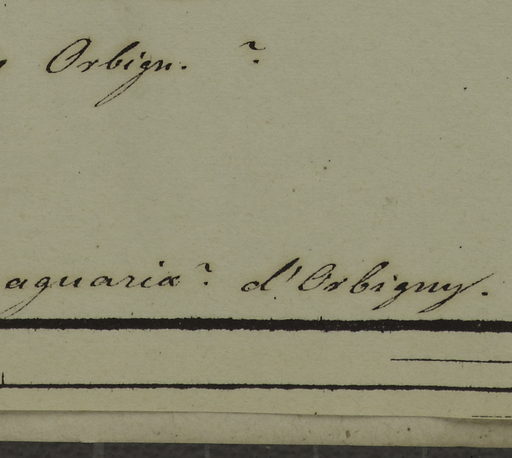 Orbign. ?
aguaria? d'Orbigny.